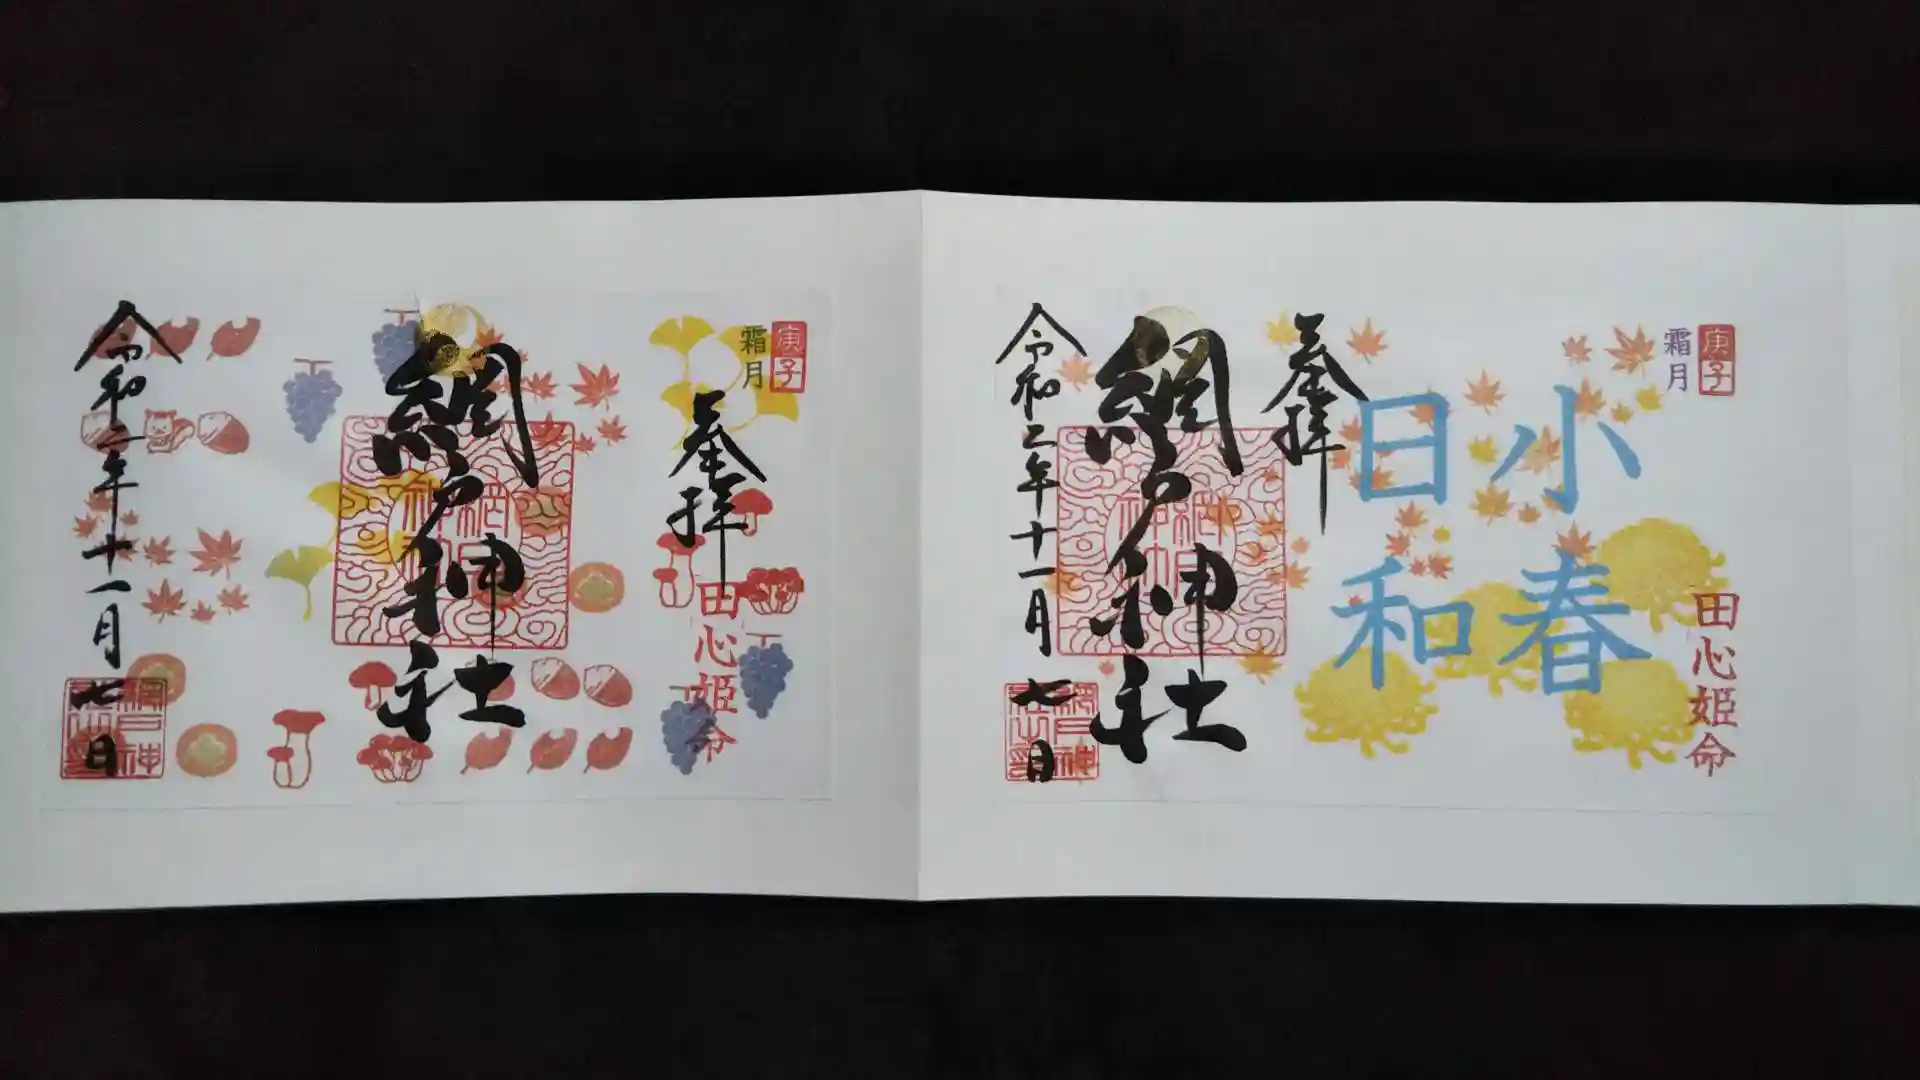 庚子
霜月
奉拝
田心姫命
網戸神社
令和二年十一月七日
網戸神社之印
庚子
霜月
小春
日和
田心姫命
奉拝
網戸神社
令和二年十一月七日
網戸神社之印